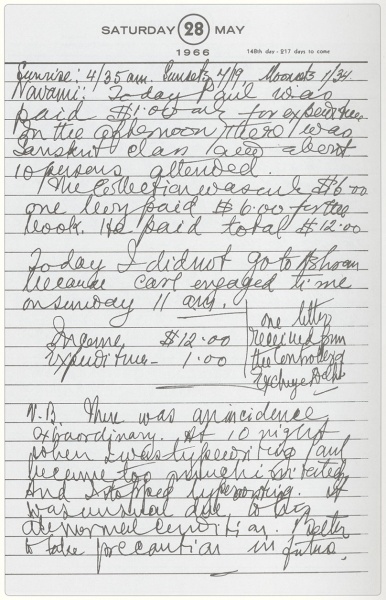 SATURDAY 28 MAY
1966 148th day - 217 days to come
Sunrise: 4/35 am. Sunset 7/19, Moonsets 1/34
Navami: Today Paul was
paid $1.00 only for expenditure
In the afternoon there was
Sanskrit class and about
10 persons attended.
The collection was only $6.00
one boy paid $6.00 for the
book. So paid total $12.00
Today I did not go to Ashram
because Carl engaged time
on sunday 11 am.
Income $12.00
Expenditure - 1.00
one letter
received from
the Controller of
Exchange
N.B. There was an incidence
extraordinary. At 10 night
when I was typewriting Paul
became too much irritated
And I stopped typewriting. It
was unusual due to his
abnormal condition. Better
to take precaution in future.